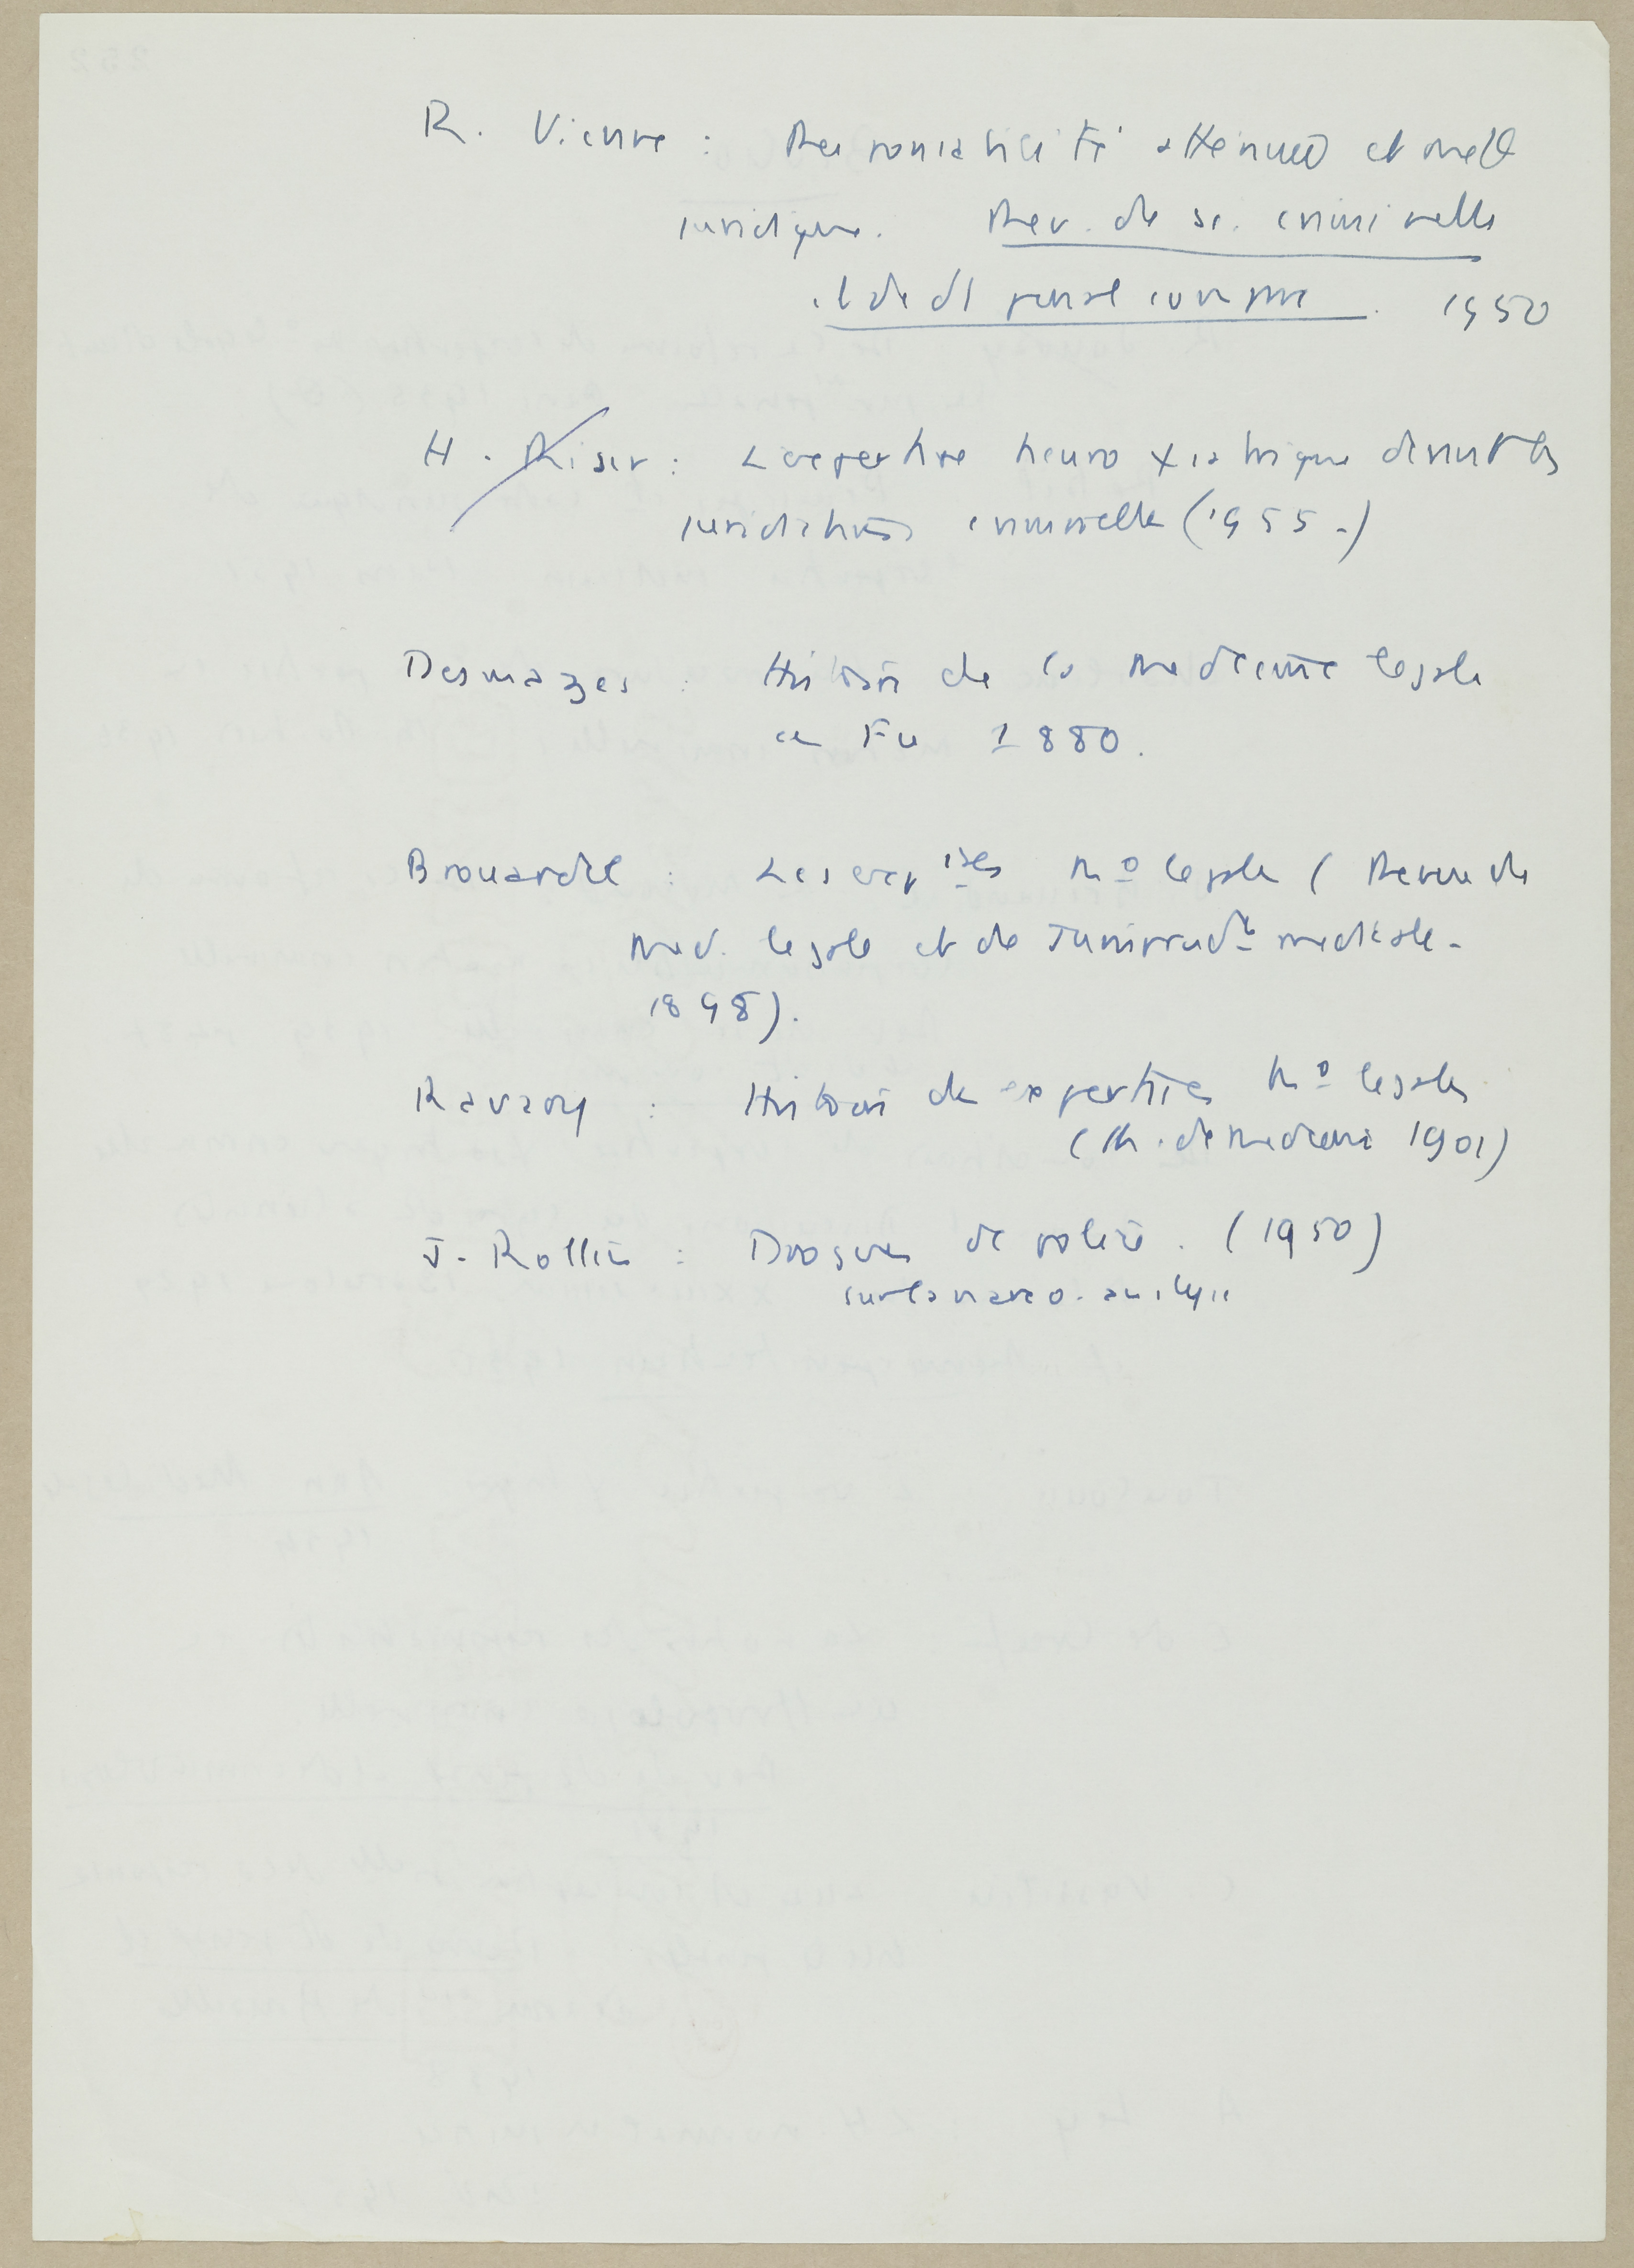 R. Vienne : Responsabilité atténuée et
juridique. Rev. de sc. criminelle
et de dt pénal comparé. 1950
H. Riser : L'expertise neuro χiatrique devant les
juridictions criminelles (1955-)
Desmazes : Histoire de la médecine légale
en Fce 1880.
Brouardel : Les expises mo légale ( Revue de
med. légale et de Jurisprudce médicale-
1898).
Ravaoy : Histoire des expertises mo légales
(Th. de médecine 1901)
J. Rollin : Drogues de police. (1950)
sur la narco-analyse